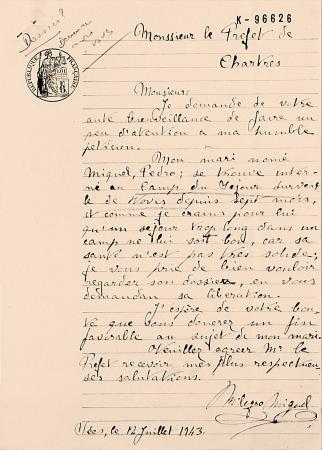 K - 96626
Dossier
Monssieur le Prefet de
Chartres
RÉPUBLIQUE FRANÇAISE
Monsieur:
Je demande de votre
aute bienveillance de faire un
peu d'atention a ma humble
peticion.
Mon mari nomé
Miguel, Pedro; se trouve inter-
né au Camp du Sejour Surveil-
lé de Voves depuis sept mois,
et comme je crains pour lui
qu'un sejour trop long dans un
camp ne lui soit bon, car sa
santé n'est pas très solide;
je vous prie de bien vouloir
regarder son dossier, en vous
demandan sa liberation.
J'espère de votre bon-
té que vous donerer un fin
favorable au sujet de mon mari.
Veuiller agreer Mr le
Prefet recevoir mes plus respectueu
ses salutations.
Milagro Miguel
le 12 Juillet 1943.